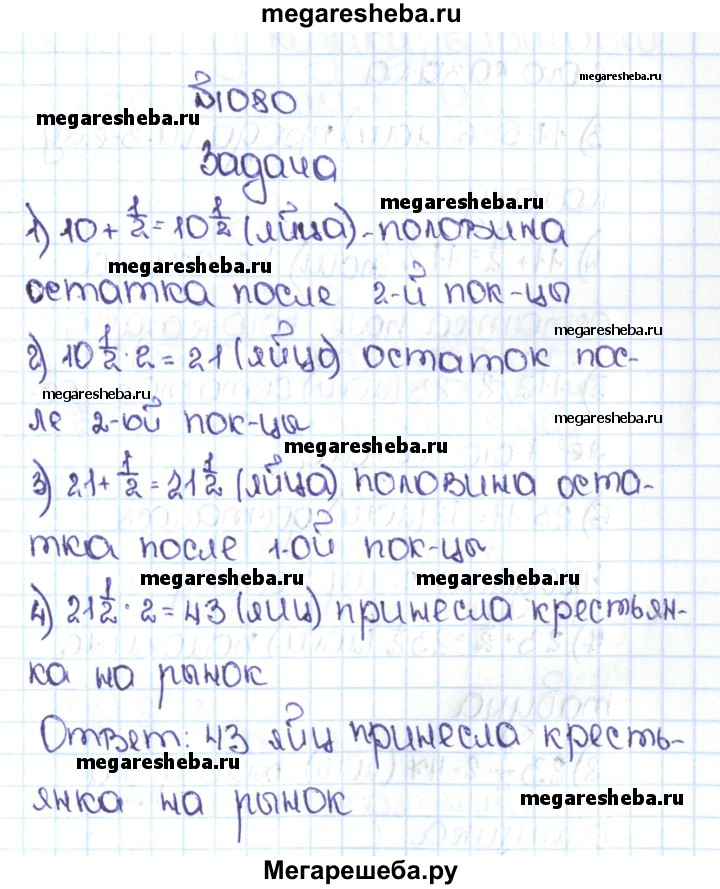 megaresheba.ru
megaresheba.ru
№1080
megaresheba.ru
Задача
megaresheba.ru
1) 10 + 1/2 = 10 1/2 (яйца) - половина
megaresheba.ru
остатка после 2-й пок-цы
megaresheba.ru
2) 10 1/2 · 2 = 21 (яйцо) остаток пос-
megaresheba.ru
ле 2-ой пок-цы
megaresheba.ru
megaresheba.ru
3) 21 + 1/2 = 21 1/2 (яйца) половина оста-
тка после 1-ой пок-цы
megaresheba.ru megaresheba.ru
4) 21 1/2 · 2 = 43 (яиц) принесла крестьян-
ка на рынок
megaresheba.ru
Ответ: 43 яйц принесла кресть-
megaresheba.ru
янка на рынок
megaresheba.ru
Мегарешеба.ру